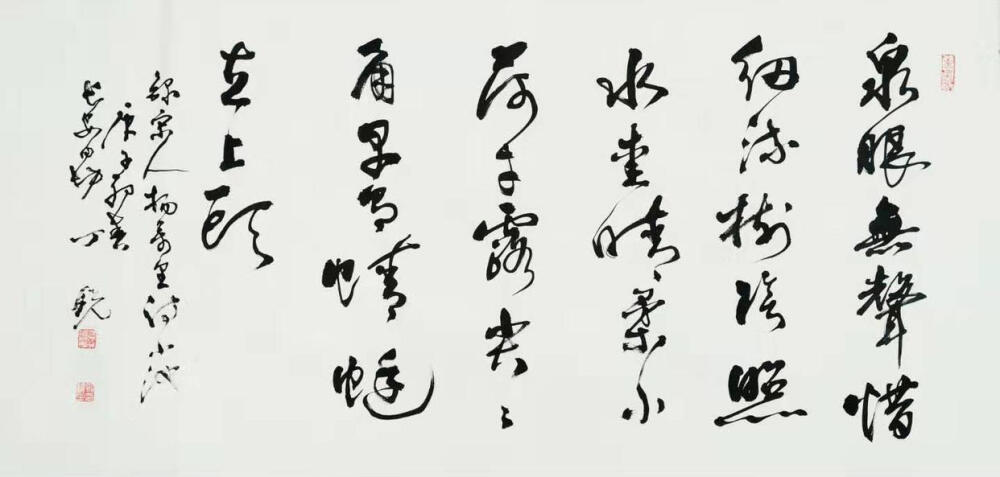 泉眼無聲惜
細流樹陰照
水愛晴柔小
荷才露尖々
角早有蜻蜓
立上頭
錄宋人楊萬里詩小池
庚子初春
長安